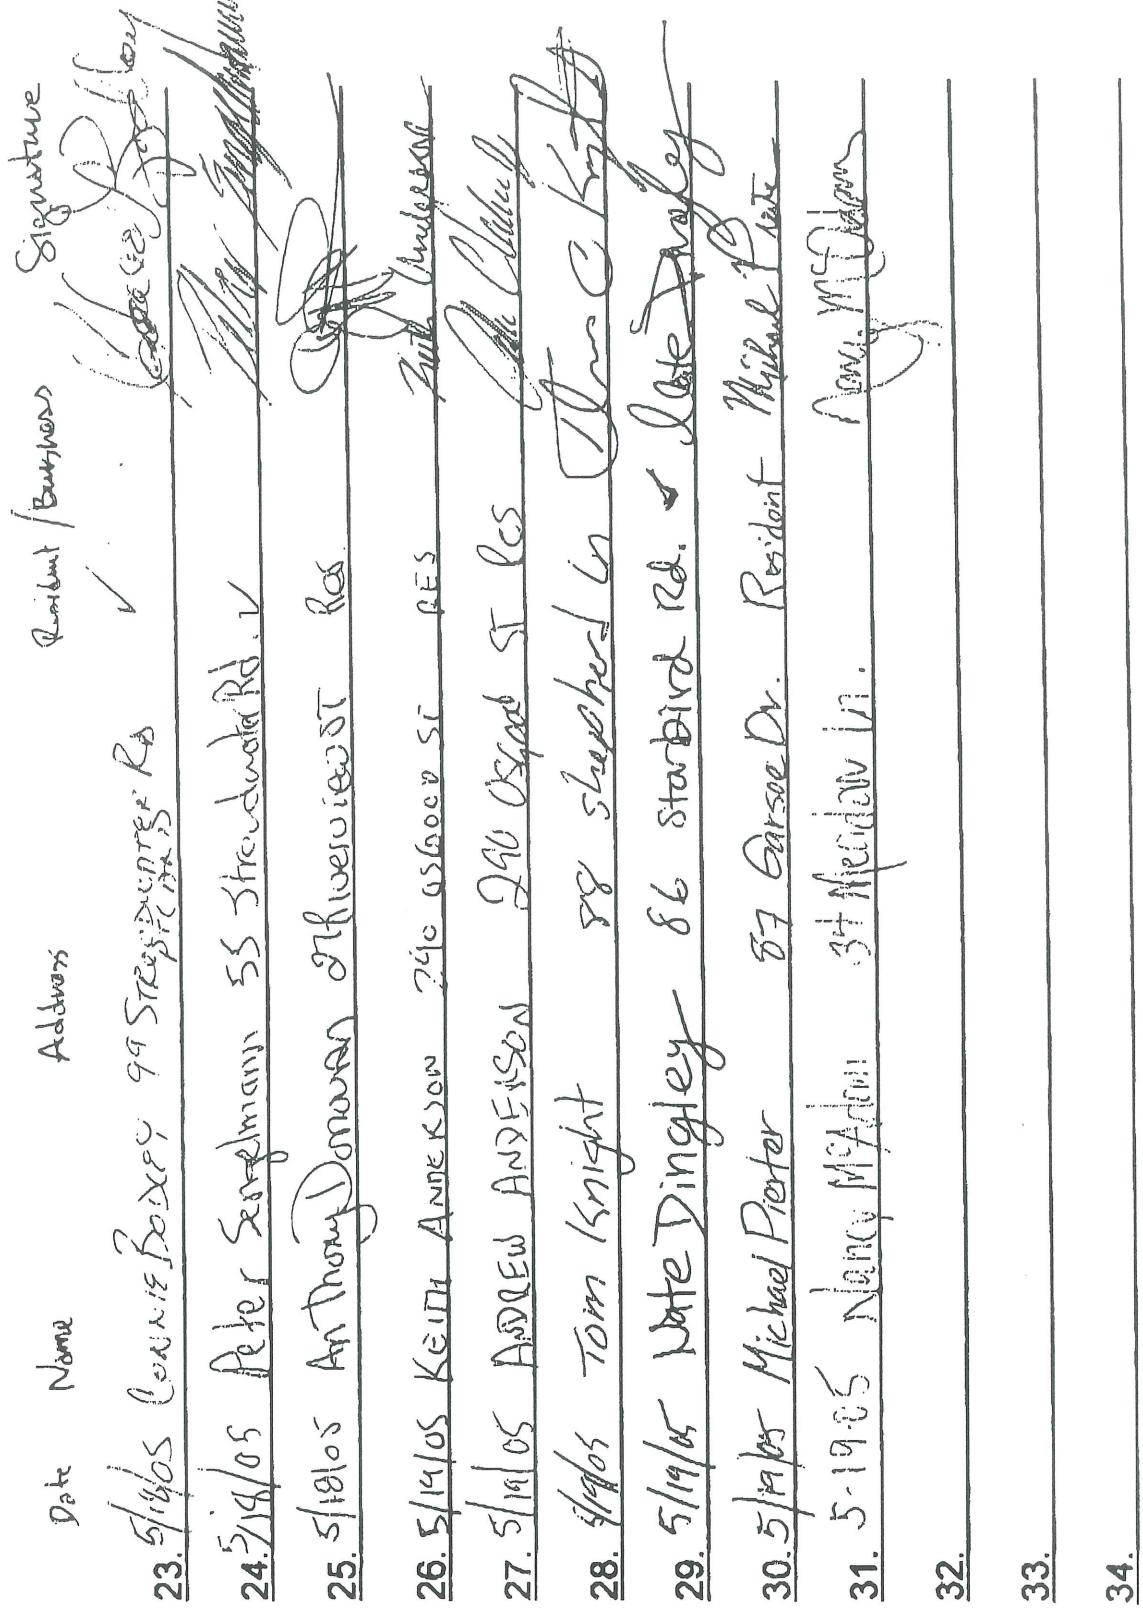 Date Name Address Resident / Business Signature
23. 5/18/05 CONNIE 99 STROUDWATER RD ✓
24. 5/18/05 Peter Sengelmann 55 Stroudwater Rd. ✓
25. 5/18/05 AnThony Donovan Res
26. 5/19/05 KEITH ANDERSON 290 OSGOOD ST RES Keith Anderson
27. 5/19/05 ANDREW ANDERSON 290 Osgood ST Res
28. 5/19/05 Tom Knight 88 Shepherd Ln
29. 5/19/05 Nate Dingley 86 Starbird Rd. ✓ Nate Dingley
30. 5/19/05 Michael Porter 87 Garsoe Dr. Resident
31. 5-19-05 Nancy McAdam 34 Meridan Ln. Nancy McAdam
32.
33.
34.